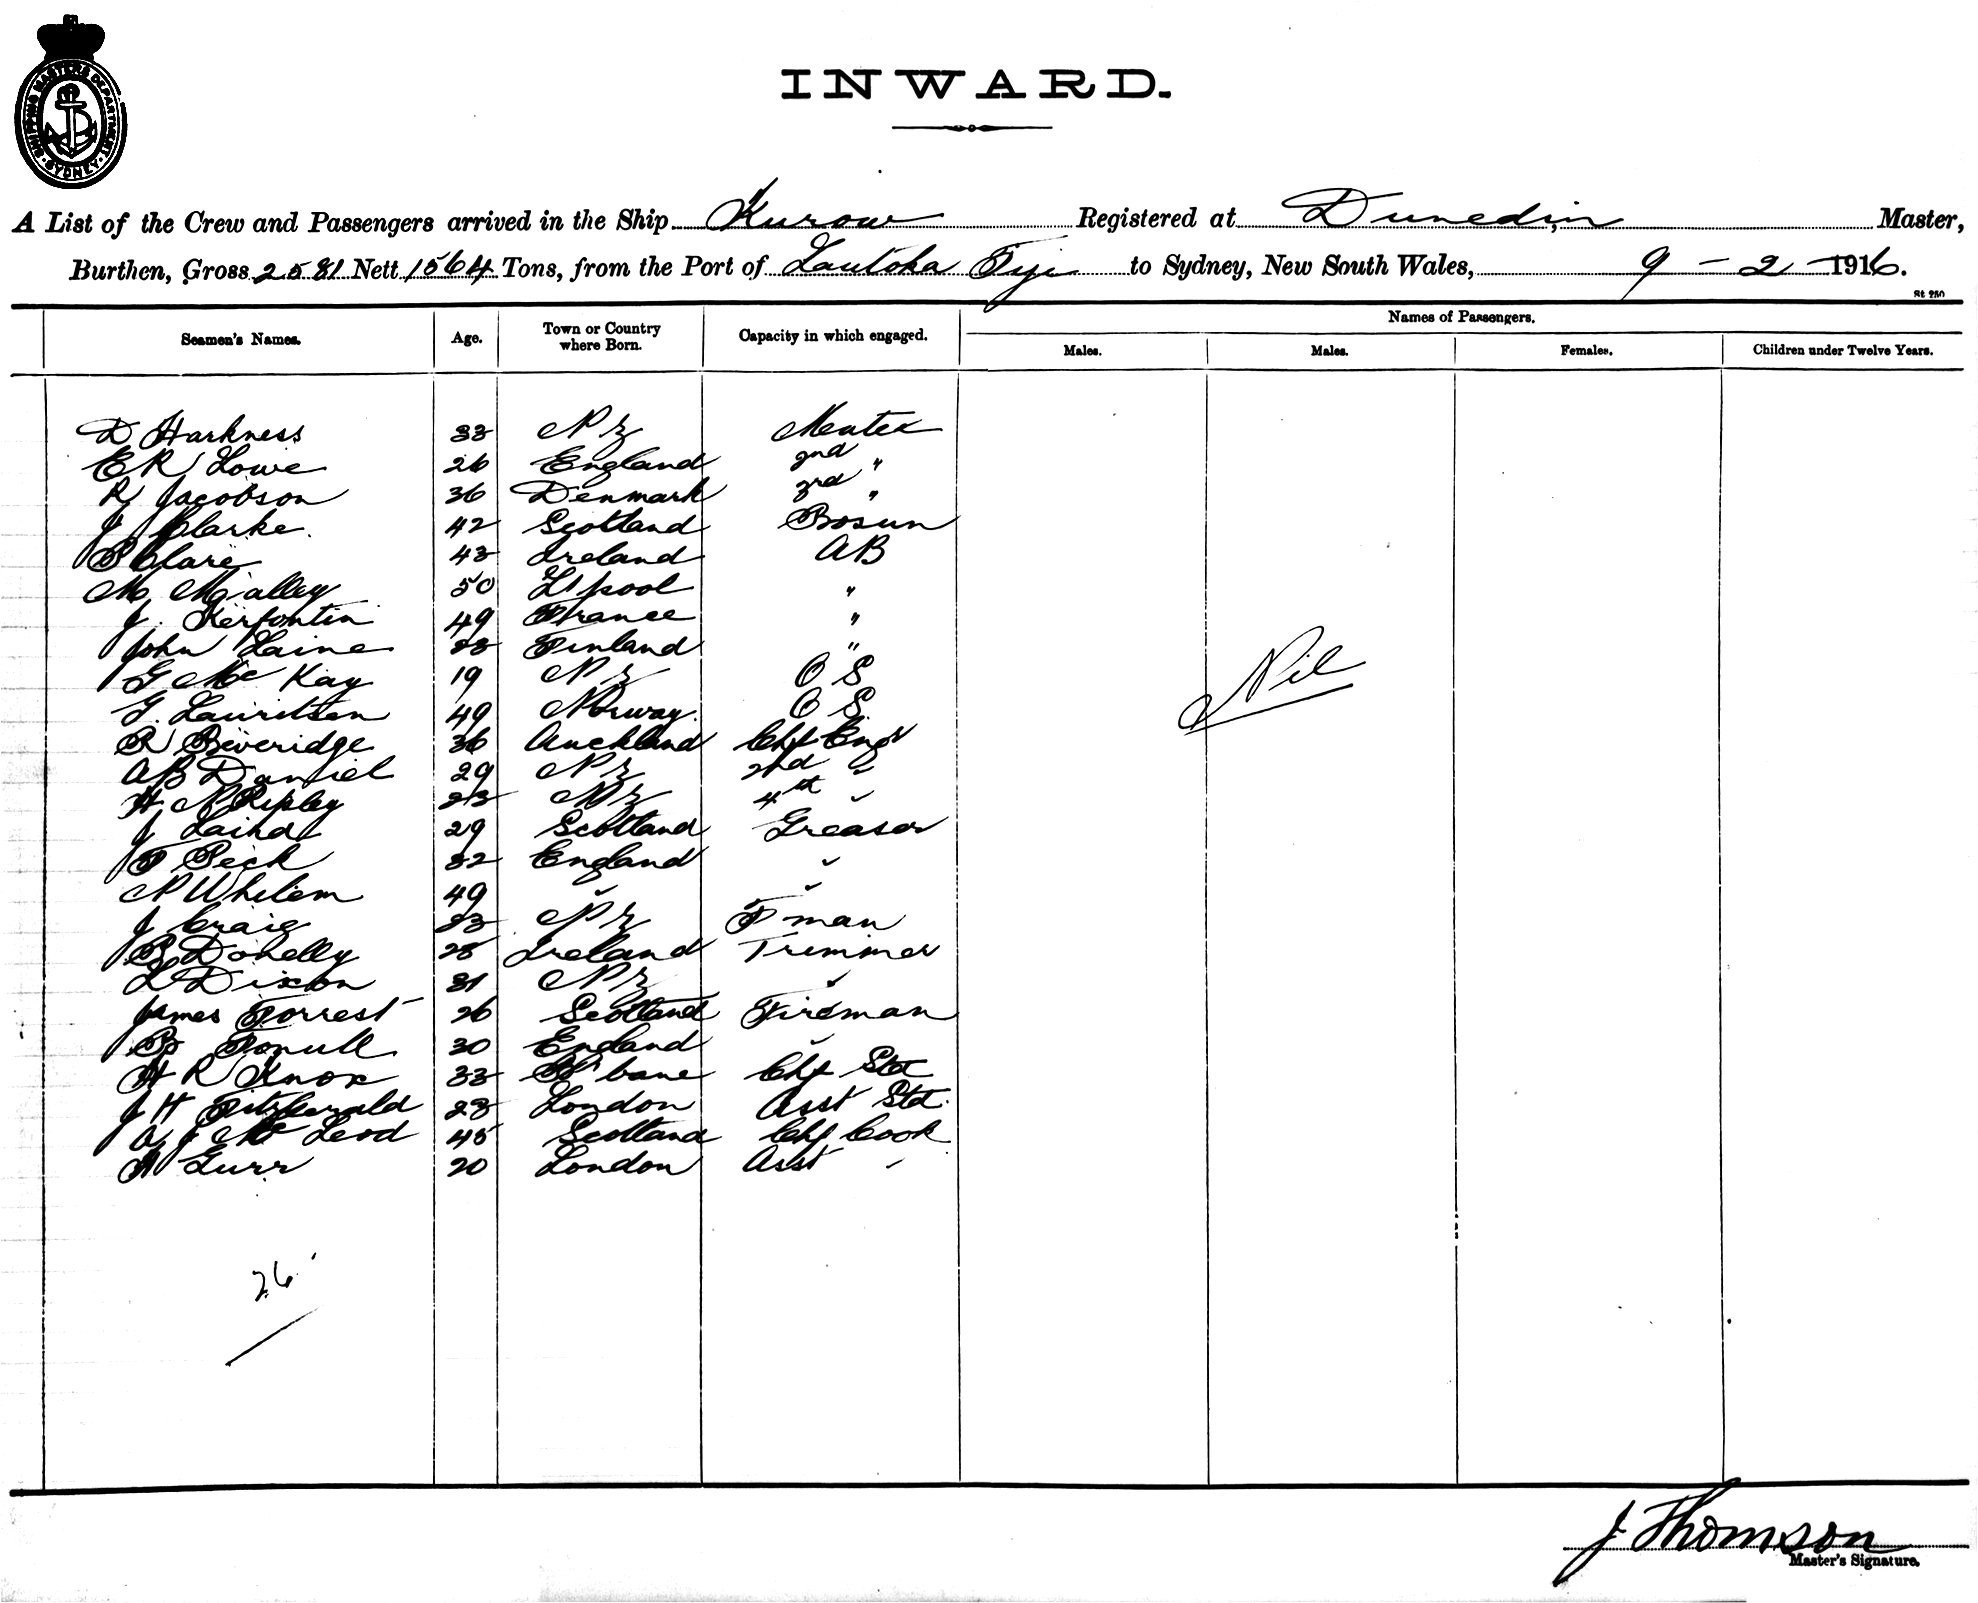 SHIPPING MASTERS DEPARTMENT · SYDNEY ·
INWARD.
A List of the Crew and Passengers arrived in the Ship Kurow Registered at Dunedin, Master,
Burthen, Gross 2581 Nett 1564 Tons, from the Port of Lautoka Fiji to Sydney, New South Wales, 9 - 2 - 1916.
St 250
Seamen's Names. Age. Town or Country where Born. Capacity in which engaged. Names of Passengers.
Males. Males. Females. Children under Twelve Years.
D Harkness 33 N Z
E R Lowe 26 England 2nd "
R Jacobson 36 Denmark 3rd "
J Clarke. 42 Scotland Bosun
P Clare 43 Ireland AB
M. 50 L'pool "
J. Kerfontin 49 France "
John Laine 28 Finland "
G Mc Kay 19 N Z O S
G. Lauritsen 49 Norway. O S
R Beveridge 36 Auckland Chf Engr
AB Daniel 29 N Z 2nd "
H. N Ripley 23 N Z 4th "
J Laird 29 Scotland Greaser
T Peck 32 England "
N Whilem 49 " "
J Craig 23 N Z F man
B Donelly 28 Ireland Trimmer
L Dixon 31 N Z "
James Forrest 26 Scotland Fireman
B 30 England "
H R Knox 33 B'bane Chf Std
J H Fitzgerald 23 London Asst Std.
A J Mc Leod 45 Scotland Chf Cook
A Gurr 20 London Asst "
Nil
26
J Thomson
Master's Signature.